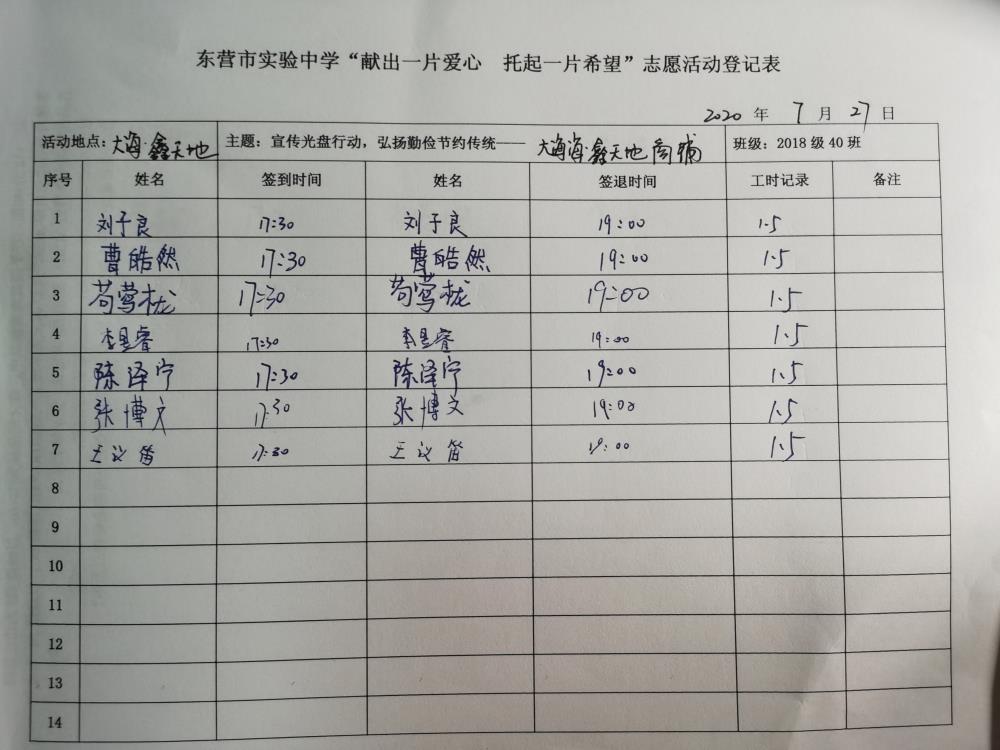 东营市实验中学“献出一片爱心 托起一片希望”志愿活动登记表
2020 年 7 月 27 日
活动地点：大海·鑫天地 主题：宣传光盘行动，弘扬勤俭节约传统—— 大海·鑫天地商铺 班级：2018 级 40 班
序号 姓名 签到时间 姓名 签退时间 工时记录 备注
1 刘子良 17:30 刘子良 19:00 1.5
2 曹皓然 17:30 曹皓然 19:00 1.5
3 苟莺栊 17:30 苟莺栊 19:00 1.5
4 李昱睿 17:30 李昱睿 19:00 1.5
5 陈泽宁 17:30 陈泽宁 19:00 1.5
6 张博文 17:30 张博文 19:00 1.5
7 王议笛 17:30 王议笛 19:00 1.5
8
9
10
11
12
13
14